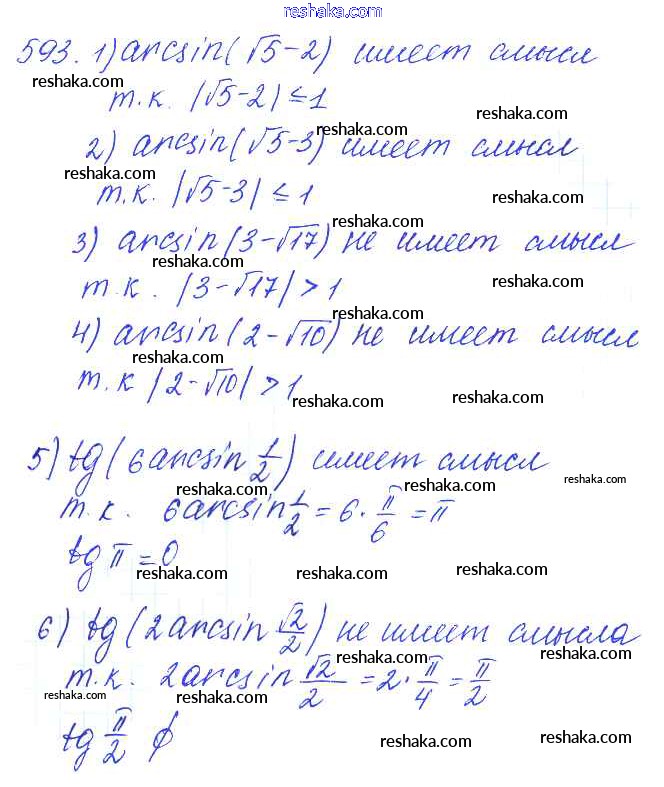 reshaka.com
593. 1) arcsin(√5-2) имеет смысл
reshaka.com
т.к. |√5-2| ≤ 1
reshaka.com
reshaka.com
2) arcsin(√5-3) имеет смысл
reshaka.com
т.к. |√5-3| ≤ 1
reshaka.com
3) arcsin(3-√17) не имеет смысл
reshaka.com
reshaka.com
т.к. |3-√17| > 1
reshaka.com
4) arcsin(2-√10) не имеет смысл
reshaka.com
т.к |2-√10| > 1
reshaka.com
reshaka.com
5) tg(6 arcsin 1/2) имеет смысл
reshaka.com
reshaka.com
reshaka.com
т.к. 6 arcsin 1/2 = 6 · π/6 = π
tg π = 0
reshaka.com
reshaka.com
6) tg(2 arcsin √2/2) не имеет смысла
reshaka.com
reshaka.com
т.к. 2 arcsin √2/2 = 2 · π/4 = π/2
reshaka.com
reshaka.com
tg π/2 ∅
reshaka.com
reshaka.com